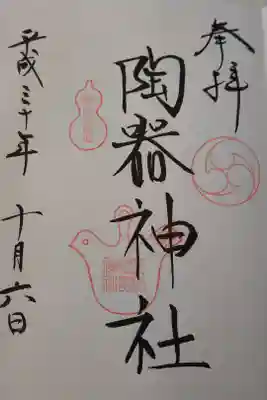 奉拝
陶器神社
平成三十年 十月六日